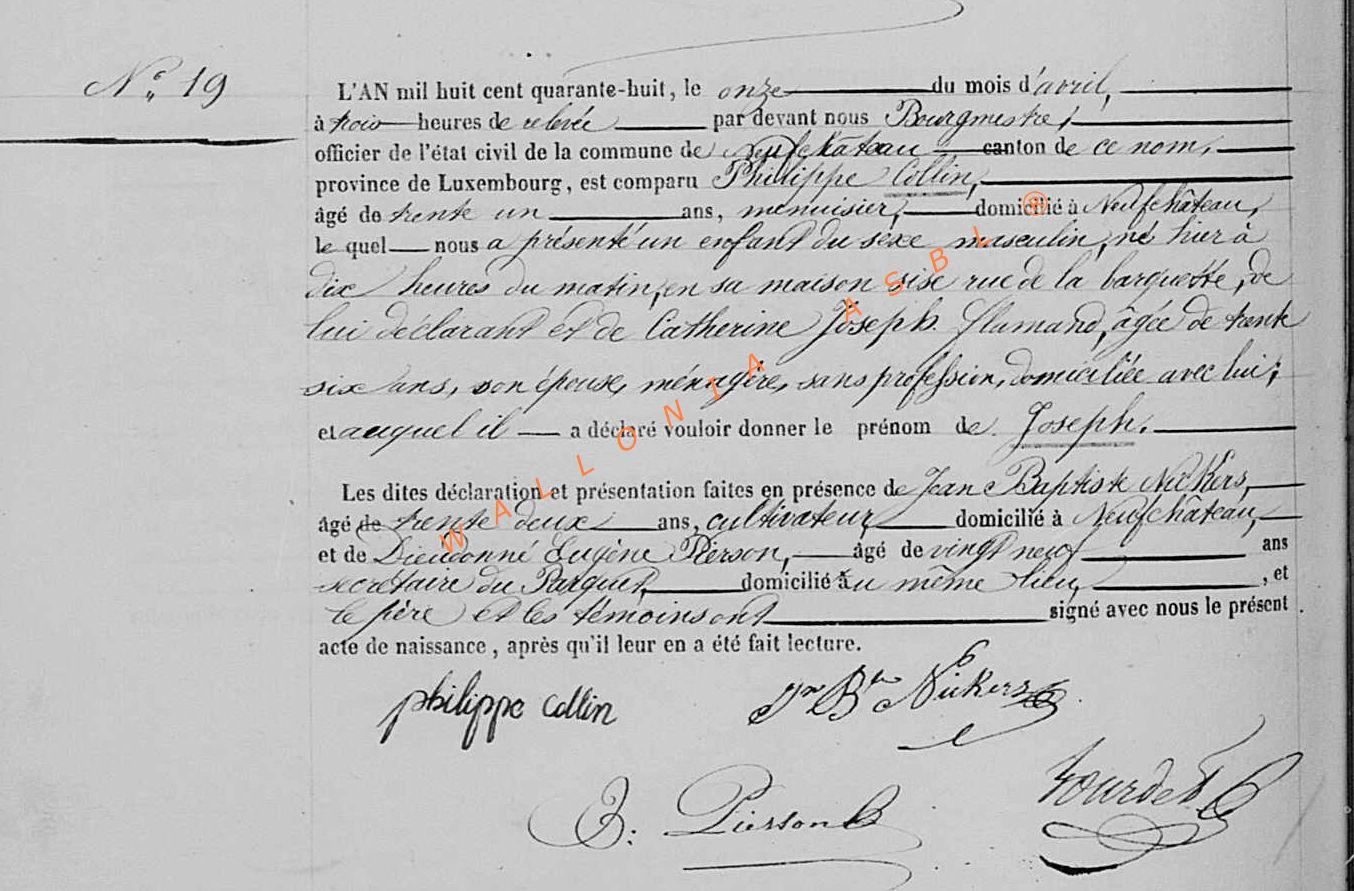 N° 19
L'AN mil huit cent quarante-huit, le onze du mois d'avril,
à trois heures de relevée par devant nous Bourgmestre,
officier de l'état civil de la commune de Neufchâteau canton de ce nom,
province de Luxembourg, est comparu Philippe Collin,
âgé de trente un ans, menuisier, domicilié à Neufchâteau,
le quel nous a présenté un enfant du sexe masculin, né hier à
dix heures du matin, en sa maison sise rue de la barquette, de
lui déclarant et de Catherine Joseph flamand, âgée de trente
six ans, son épouse, ménagère, sans profession, domiciliée avec lui,
et auquel il a déclaré vouloir donner le prénom de Joseph.
Les dites déclaration et présentation faites en présence de Jean Baptiste Nickers,
âgé de trente deux ans, cultivateur, domicilié à Neufchâteau,
et de Dieudonné Eugène Pierson, âgé de vingt neuf ans
secrétaire du Parquet, domicilié au même lieu, , et
le père et les témoins ont signé avec nous le présent
acte de naissance, après qu'il leur en a été fait lecture.
philippe collin Jn Bte Nickers
Pierson Tourdet
WALLONIA ASBL ®